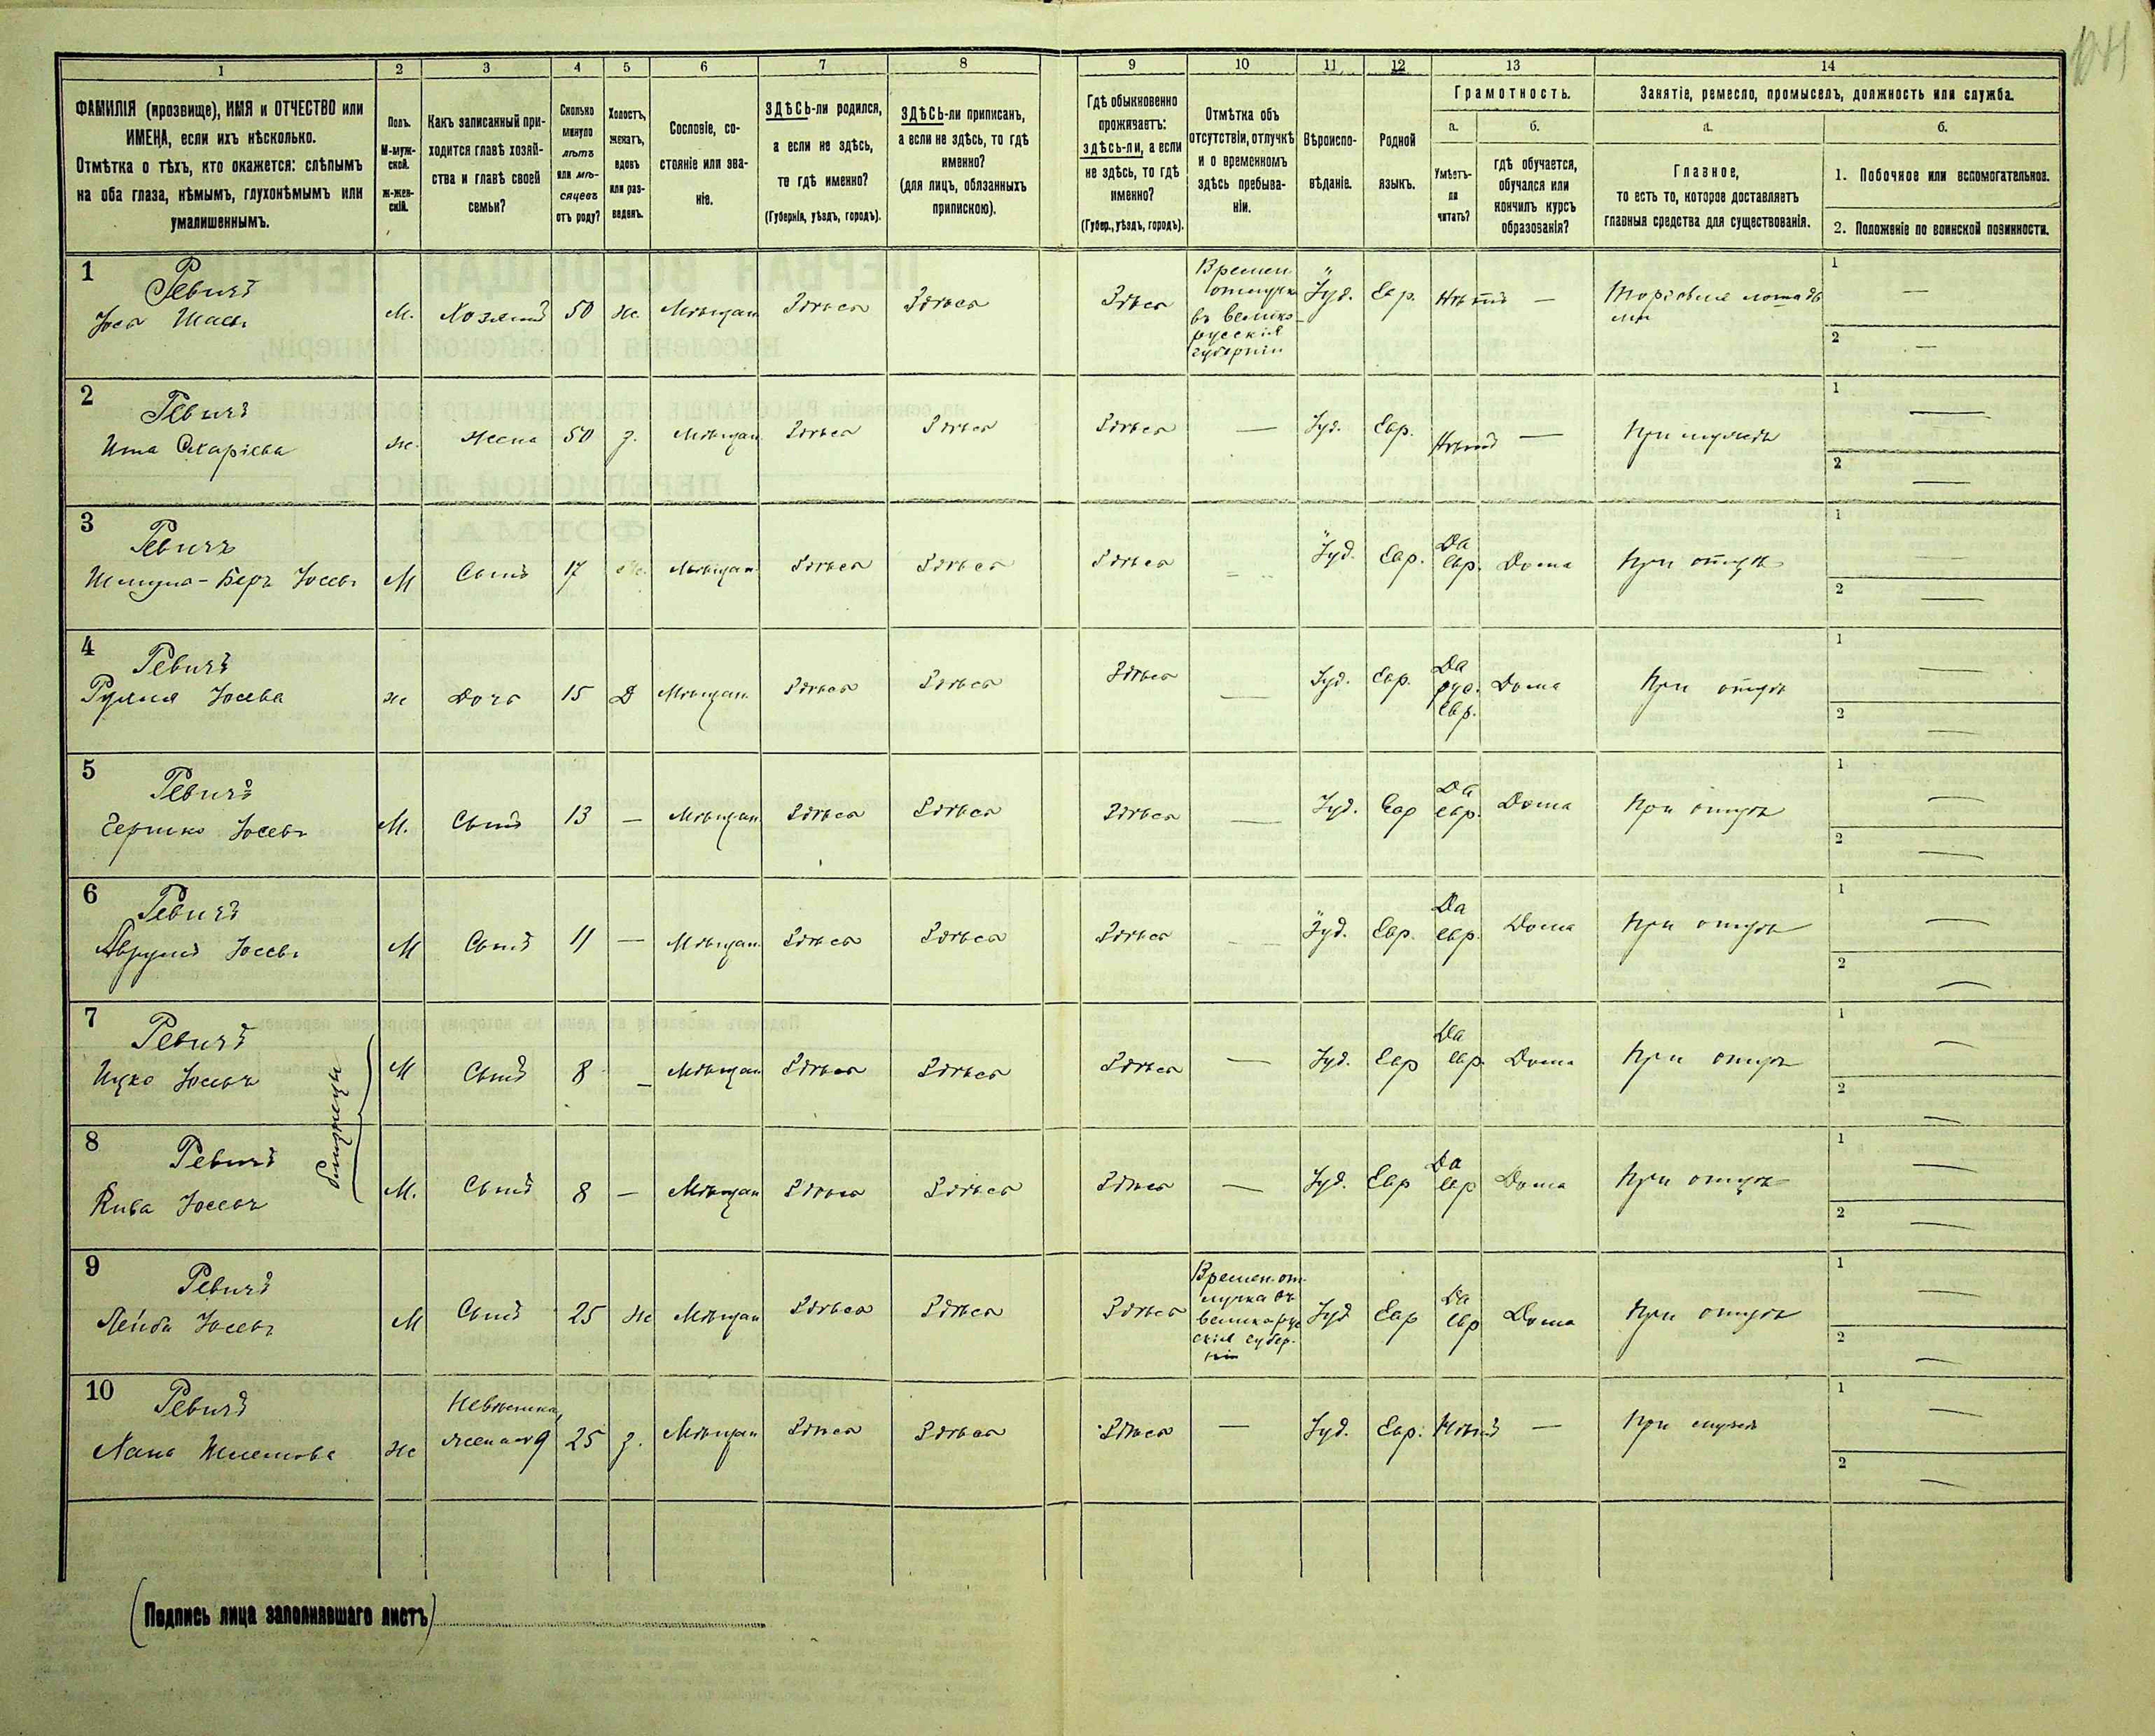 1 2 3 4 5 6 7 8 9 10 11 12 13 14
ФАМИЛІЯ (прозвище), ИМЯ и ОТЧЕСТВО или
ИМЕНА, если ихъ нѣсколько.
Отмѣтка о тѣхъ, кто окажется: слѣпымъ
на оба глаза, нѣмымъ, глухонѣмымъ или
умалишеннымъ.
Полъ.
М-муж-
ской.
ж-жен-
скій.
Какъ записанный при-
ходится главѣ хозяй-
ства и главѣ своей
семьи?
Сколько
минуло
лѣтъ
или мѣ-
сяцевъ
отъ роду?
Холостъ,
женатъ,
вдовъ
или раз-
веденъ.
Сословіе, со-
стояніе или зва-
ніе.
ЗДѢСЬ-ли родился,
а если не здѣсь,
то гдѣ именно?
(Губернія, уѣздъ, городъ).
ЗДѢСЬ-ли приписанъ,
а если не здѣсь, то гдѣ
именно?
(для лицъ, обязанныхъ
припискою).
Гдѣ обыкновенно
проживаетъ:
здѣсь-ли, а если
не здѣсь, то гдѣ
именно?
(Губер., уѣздъ, городъ).
Отмѣтка объ
отсутствіи, отлучкѣ
и о временномъ
здѣсь пребыва-
ніи.
Вѣроиспо-
вѣданіе.
Родной
языкъ.
Грамотность.
а.
Умѣетъ-
ли
читать?
б.
гдѣ обучается,
обучался или
кончилъ курсъ
образованія?
Занятіе, ремесло, промыселъ, должность или служба.
а.
Главное,
то есть то, которое доставляетъ
главныя средства для существованія.
б.
1. Побочное или вспомогательное.
2. Положеніе по воинской повинности.
1 Ревичъ
Іось М. Хозяинъ 50 ж. Мѣщан Здѣсь Здѣсь Здѣсь
Времен.
отлучка
въ велико-
русскія
губерніи
Іуд. Евр. Нѣтъ — —
1 —
2 —
2 Ревичъ
Ита ж. Жена 50 з. Мѣщан Здѣсь Здѣсь Здѣсь — Іуд. Евр. Нѣтъ — При мужѣ
1 —
2 —
3 Ревичъ
Шмуль-Беръ Іосевъ М Сынъ 17 Мѣщан Здѣсь Здѣсь Здѣсь — Іуд. Евр. Да Евр. Дома При отцѣ
1 —
2 —
4 Ревичъ
Іосева ж Дочь 15 Д Мѣщан Здѣсь Здѣсь Здѣсь — Іуд. Евр. Да рус. Евр. Дома При отцѣ
1 —
2 —
5 Ревичъ
Гершко Іосевъ М. Сынъ 13 — Мѣщан Здѣсь Здѣсь Здѣсь — Іуд. Евр Да евр. Дома При отцѣ
1 —
2 —
6 Ревичъ
Аврумъ Іосевъ М Сынъ 11 — Мѣщан Здѣсь Здѣсь Здѣсь — Іуд. Евр. Да евр. Дома При отцѣ
1 —
2 —
7 Ревичъ
Ицко Іосевъ М Сынъ 8 — Мѣщан Здѣсь Здѣсь Здѣсь — Іуд. Евр Да евр. Дома При отцѣ
1 —
2 —
близнецы
8 Ревичъ
Кива Іосевъ М. Сынъ 8 — Мѣщан Здѣсь Здѣсь Здѣсь — Іуд. Евр Да евр Дома При отцѣ
1 —
2 —
9 Ревичъ
Лейба Іосевъ М Сынъ 25 ж Мѣщан Здѣсь Здѣсь Здѣсь
Времен. от-
лучка въ
великорус
скія губер-
ніи
Іуд Евр Да Евр Дома При отцѣ
1 —
2 —
10 Ревичъ
Хана ж Невѣстка, жена №9 25 з. Мѣщан Здѣсь Здѣсь Здѣсь — Іуд. Евр. Нѣтъ — При мужѣ
1 —
2 —
(Подпись лица заполнявшаго листъ)